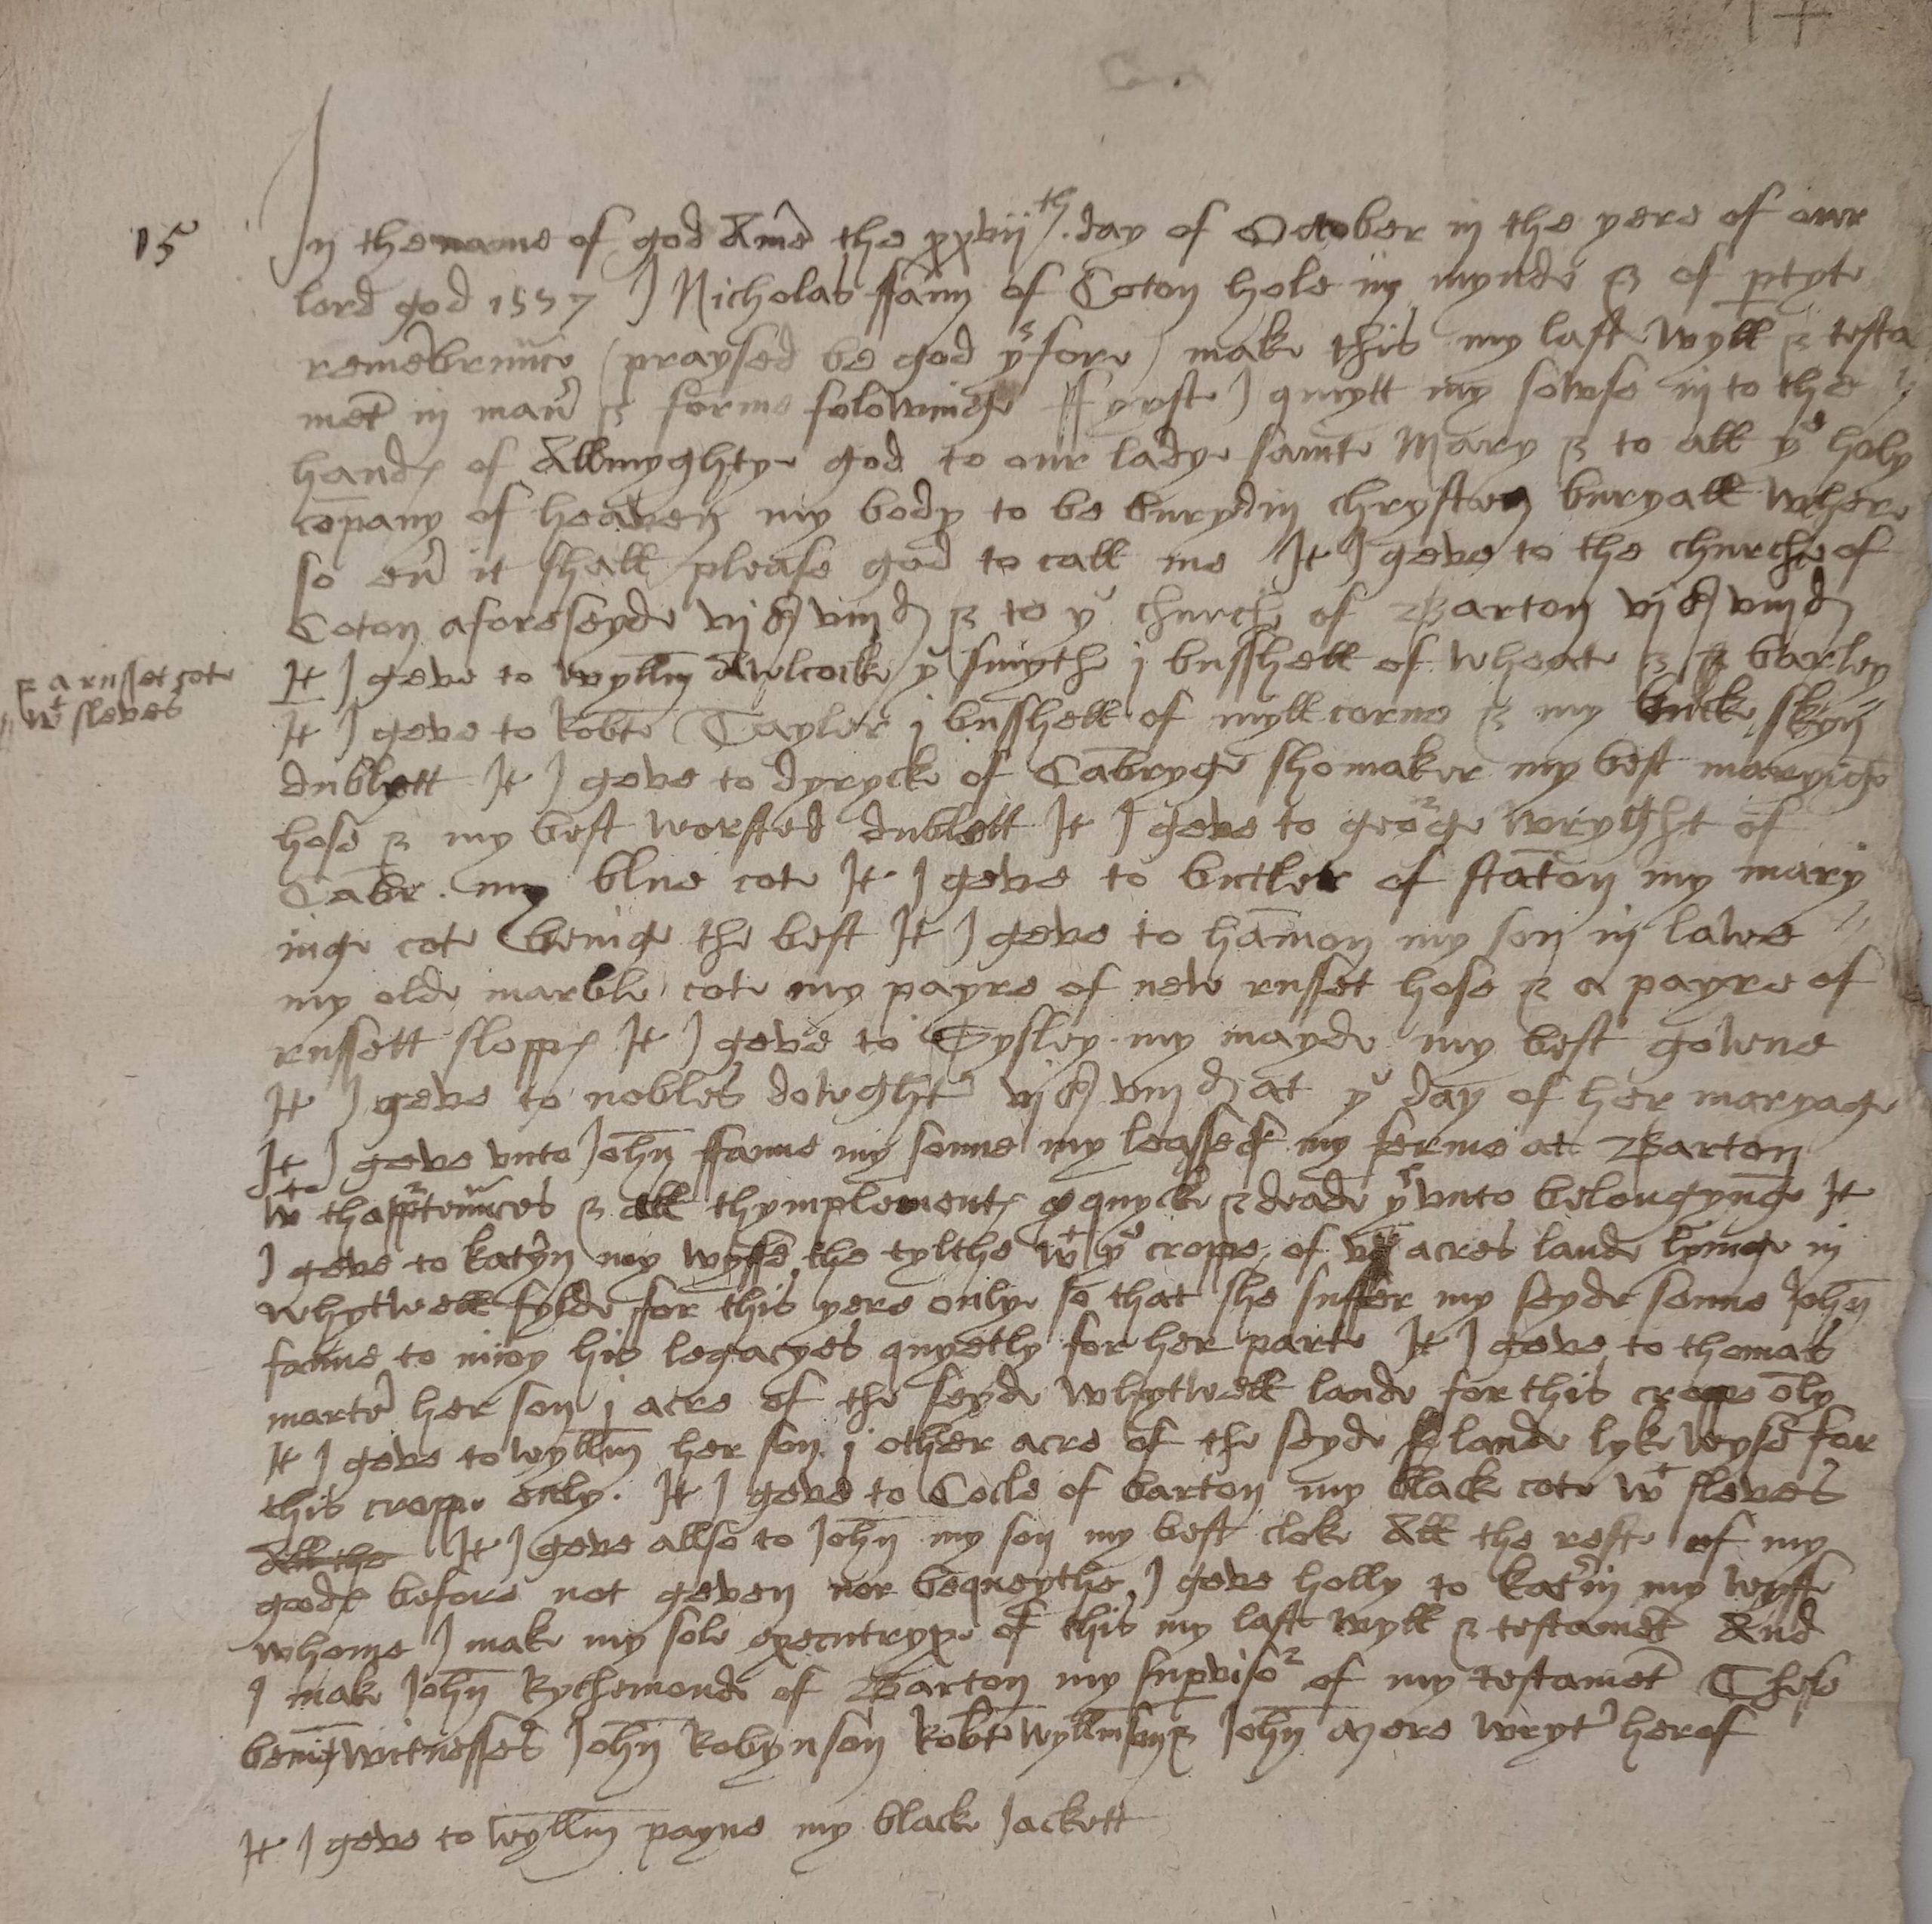 15
In the name of god Amē the xxvijth day of October in the yere of owr
lord god 1557 I Nicholas ffann of Coton hole in mynde & of ꝑfyte
remēbrunce (praysed be god yrfore) make this my last wyll & testa
mēt in manr & forme folowinge ffyrste I quytt my sowle in to the
handes of Allmyghtye god to our ladye sainte Mary & to all ye holy
cōpany of heaven my body to be buryd in chrysten buryall where
so eur it shall please god to call me It I geve to the churche of
Coton aforeseyde vjs viijd & to ye church of Barton vjs viijd
It I geve to wyllm Awlcocke ye smythe j busshell of wheate & barley
& a russet cote
wt sleves
It I geve to Robte Tayler j busshell of myll corne & my bucke skyn
dublett It I geve to dyrycke of Cābryge shomaker my best maryīge
hose & my best worsted dublett It I geve to george wryght of
Cābr. my blue cote It I geve to butler of statōn my mary
inge cote beinge the best It I geve to hāmon my son in lawe
my olde marble cote my payre of new russet hose & a payre of
russett sloppes It I geve to Cysley my mayde my best gowne
It I geve to nobles dowghtr vjs viijd at ye day of her maryage
It I geve vnto John ffanne my sonne my leasse of my ferme at Barton
wt thapprtenūces & all thymplementes quycke & deade yrvnto belongynge It
I geve to katryn my wyffe the tylthe wt ye croppe of acres lande lyinge in
whytwell fylde for this yere onlye so that she suffer my seyde sonne John
fanne to inioy his legacyes quyetly for her parte It I geve to thomas
martr her son j acre of the seyde whytwell lande for this croppe ōly
It I geve to wyllm her son j other acre of the seyde lande lyke wyse for
this croppe only. It I geve to Cocle of barton my black cote wt sleves
All the It I geve allso to John my son my best cloke All the reste of my
godes before not geven nor bequeythe I geve holly to katrin my wyffe
whome I make my sole executryxe of this my last wyll & testamēt And
I make John Rychemonde of Barton my suꝑvisor of my testamēt These
beinge witnesses John Robynson Robte wyllmson & John More wrytr herof
It I geve to wyllm payne my blacke Jackett